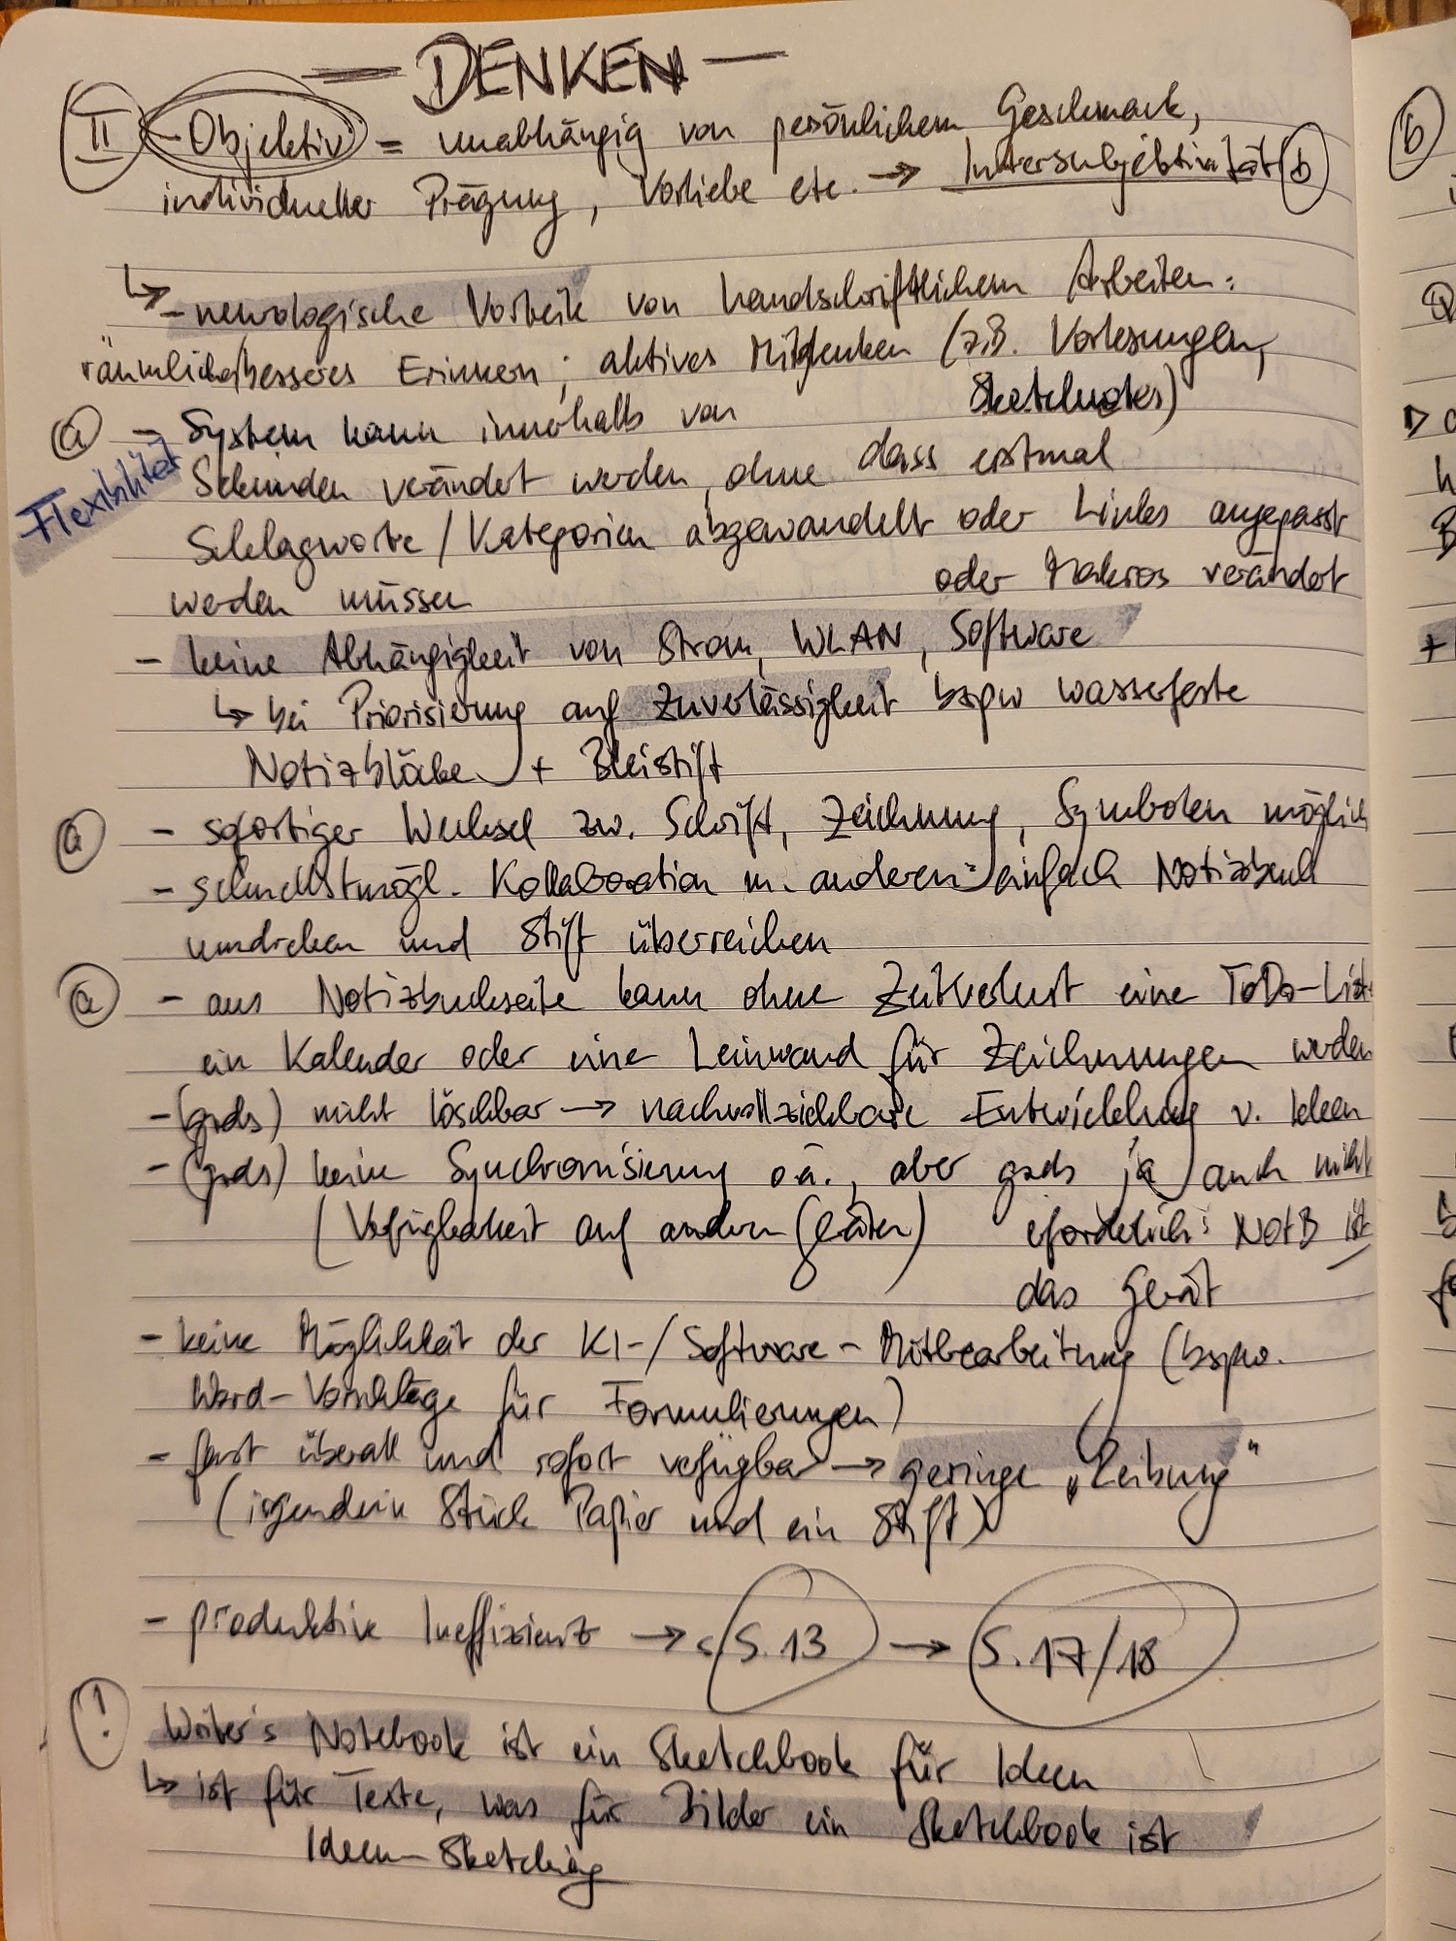 — DENKEN —
II - Objektiv = unabhängig von persönlichem Geschmack,
individueller Prägung, Vorliebe etc. → Intersubjektivität b
↳ - neurologische Vorteile von handschriftlichem Arbeiten:
räumliches/besseres Erinnern; aktives Mitdenken (z.B. Vorlesungen,
Sketchnotes)
a - System kann innerhalb von
Flexibilität
Sekunden verändert werden, ohne dass erstmal
Schlagworte/Kategorien abgewandelt oder Links angepasst
oder Makros verändert
werden müssen
- keine Abhängigkeit von Strom, WLAN, Software
↳ bei Priorisierung auf Zuverlässigkeit bspw wasserfeste
Notizblöcke + Bleistift
a - sofortiger Wechsel zw. Schrift, Zeichnung, Symbolen möglich
- schnellstmögl. Kollaboration m. anderen: einfach Notizbuch
umdrehen und Stift überreichen
a - aus Notizbuchseite kann ohne Zeitverlust eine ToDo-Liste
ein Kalender oder eine Leinwand für Zeichnungen werden
- (grds) nicht löschbar → nachvollziehbare Entwicklung v. Ideen
- (grds) keine Synchronisierung o.ä., aber grds ja auch nicht
(Verfügbarkeit auf anderen Geräten) erforderlich: NotB ist
das Gerät
- keine Möglichkeit der KI-/Software-Mitbearbeitung (bspw.
Word-Vorschläge für Formulierungen)
- fast überall und sofort verfügbar → geringe „Reibung"
(irgendein Stück Papier und ein Stift)
- produktive Ineffizienz → S. 13 → S. 17/18
! Writer's Notebook ist ein Sketchbook für Ideen
↳ ist für Texte, was für Bilder ein Sketchbook ist
Ideen-Sketching